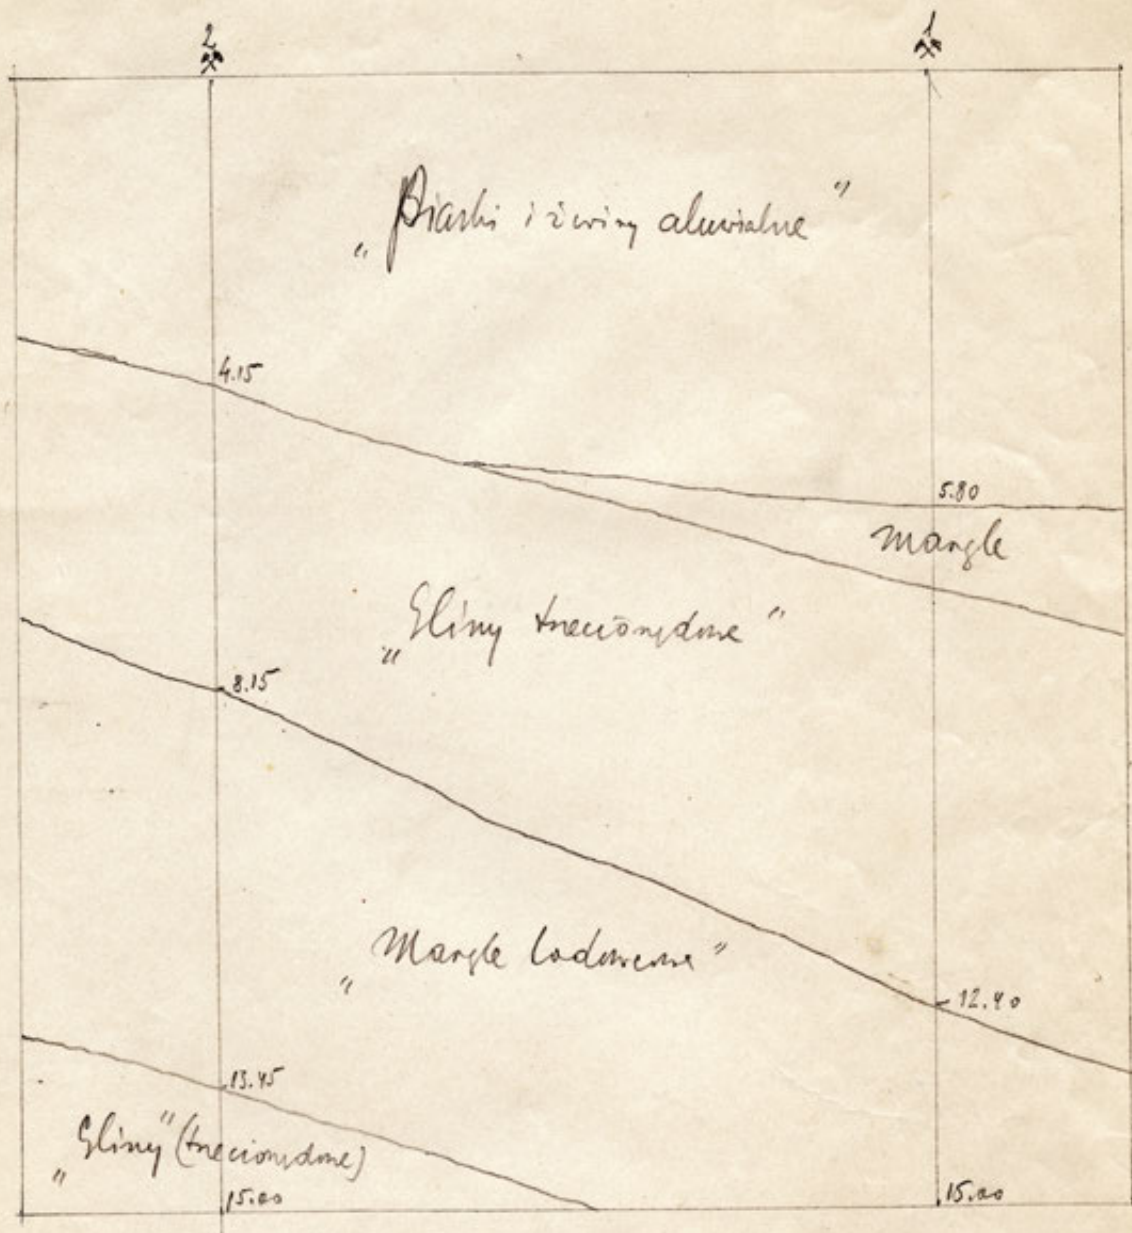 2
1
„Piaski i żwiry aluwialne”
4.15
5.80
margle
„Gliny trzeciorzędowe”
8.15
„Margle lodowcowe”
12.40
13.45
„Gliny” (trzeciorzędowe)
15.00
15.00